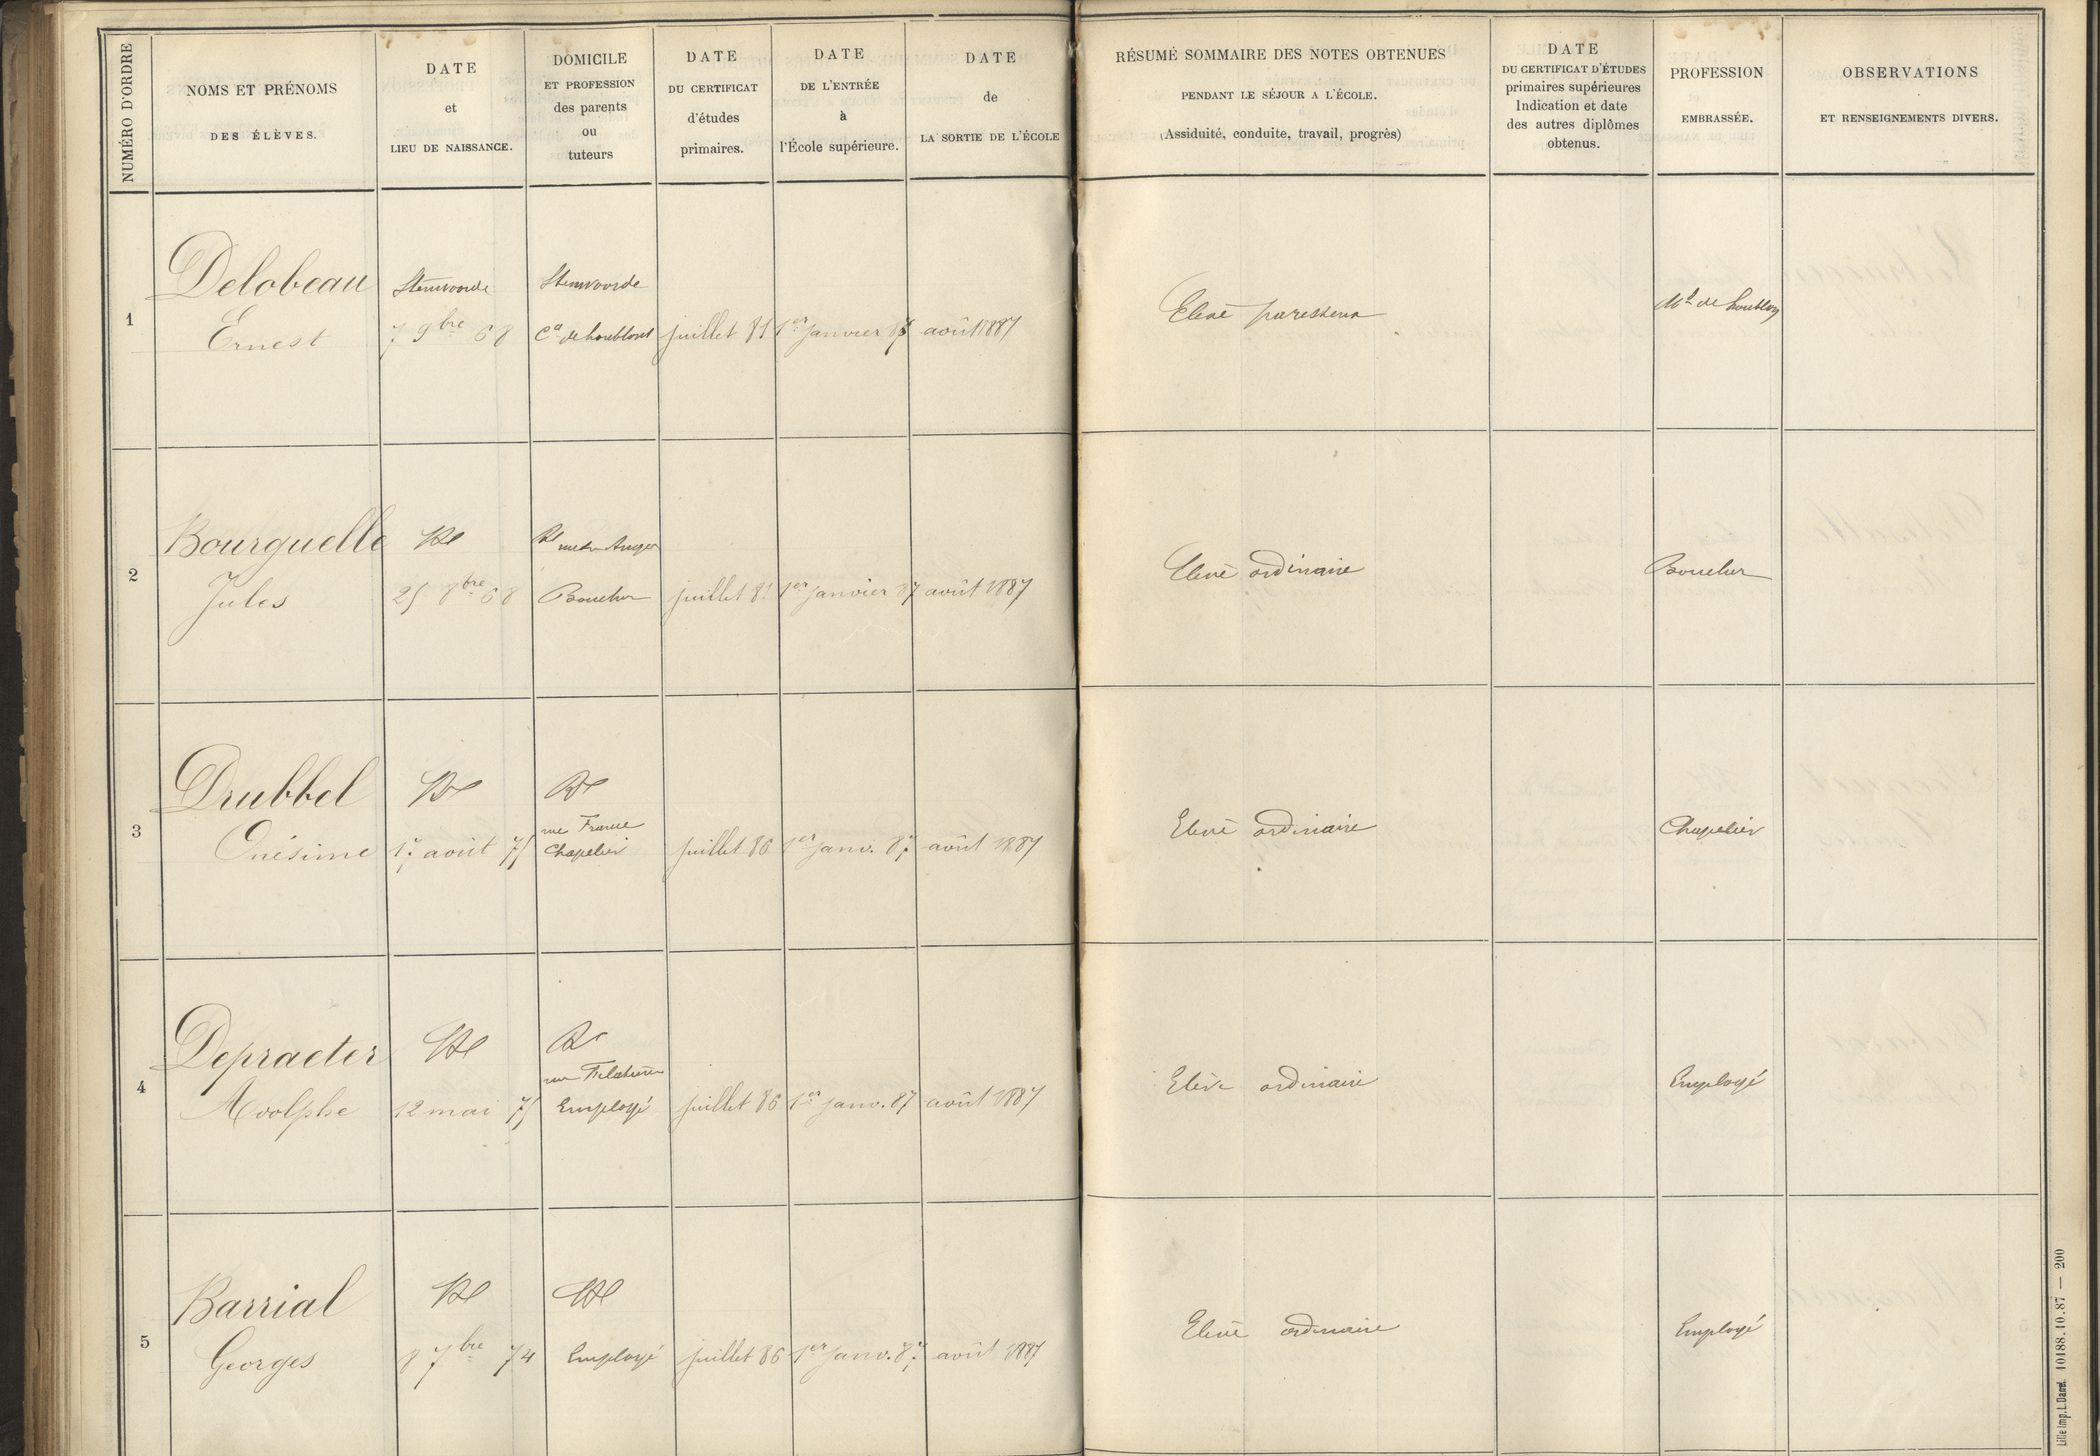 NUMÉRO D'ORDRE
NOMS ET PRÉNOMS
DES ÉLÈVES.
DATE
et
LIEU DE NAISSANCE.
DOMICILE
ET PROFESSION
des parents
ou
tuteurs
DATE
DU CERTIFICAT
d'études
primaires.
DATE
DE L'ENTRÉE
à
l'École supérieure.
DATE
de
LA SORTIE DE L'ÉCOLE
RÉSUMÉ SOMMAIRE DES NOTES OBTENUES
PENDANT LE SÉJOUR A L'ÉCOLE.
(Assiduité, conduite, travail, progrès)
DATE
DU CERTIFICAT D'ÉTUDES
primaires supérieures
Indication et date
des autres diplômes
obtenus.
PROFESSION
EMBRASSÉE.
OBSERVATIONS
ET RENSEIGNEMENTS DIVERS.
1
Delobeau
Ernest
Stenvoorde
7 9bre 68
Stenvoorde
Ct de houblons
juillet 81
1er janvier 87
août 1887
Elève paresseux
Md de houblon
2
Bourguelle
Jules
Bl
25 8bre 68
Bl
Boucher
juillet 81
1er janvier 87
août 1887
Elève ordinaire
Boucher
3
Drubbel
Onésime
Bl
17 août 75
Bl
rue France
Chapelier
juillet 86
1er janv. 87
août 1887
Elève ordinaire
Chapelier
4
Depraeter
Adolphe
Bl
12 mai 75
Bl
rue Filature
Employé
juillet 86
1er janv. 87
août 1887
Elève ordinaire
Employé
5
Barrial
Georges
Bl
8 7bre 74
Bl
Employé
juillet 86
1er janv. 87
août 1887
Elève ordinaire
Employé
Lille Imp. L. Danel. 10188.10.87 — 200